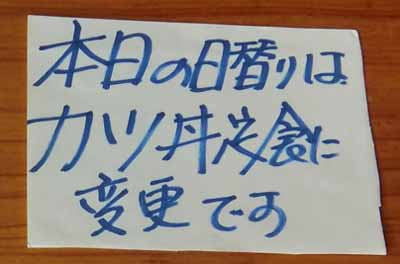 本日の日替りは
カツ丼定食に
変更です